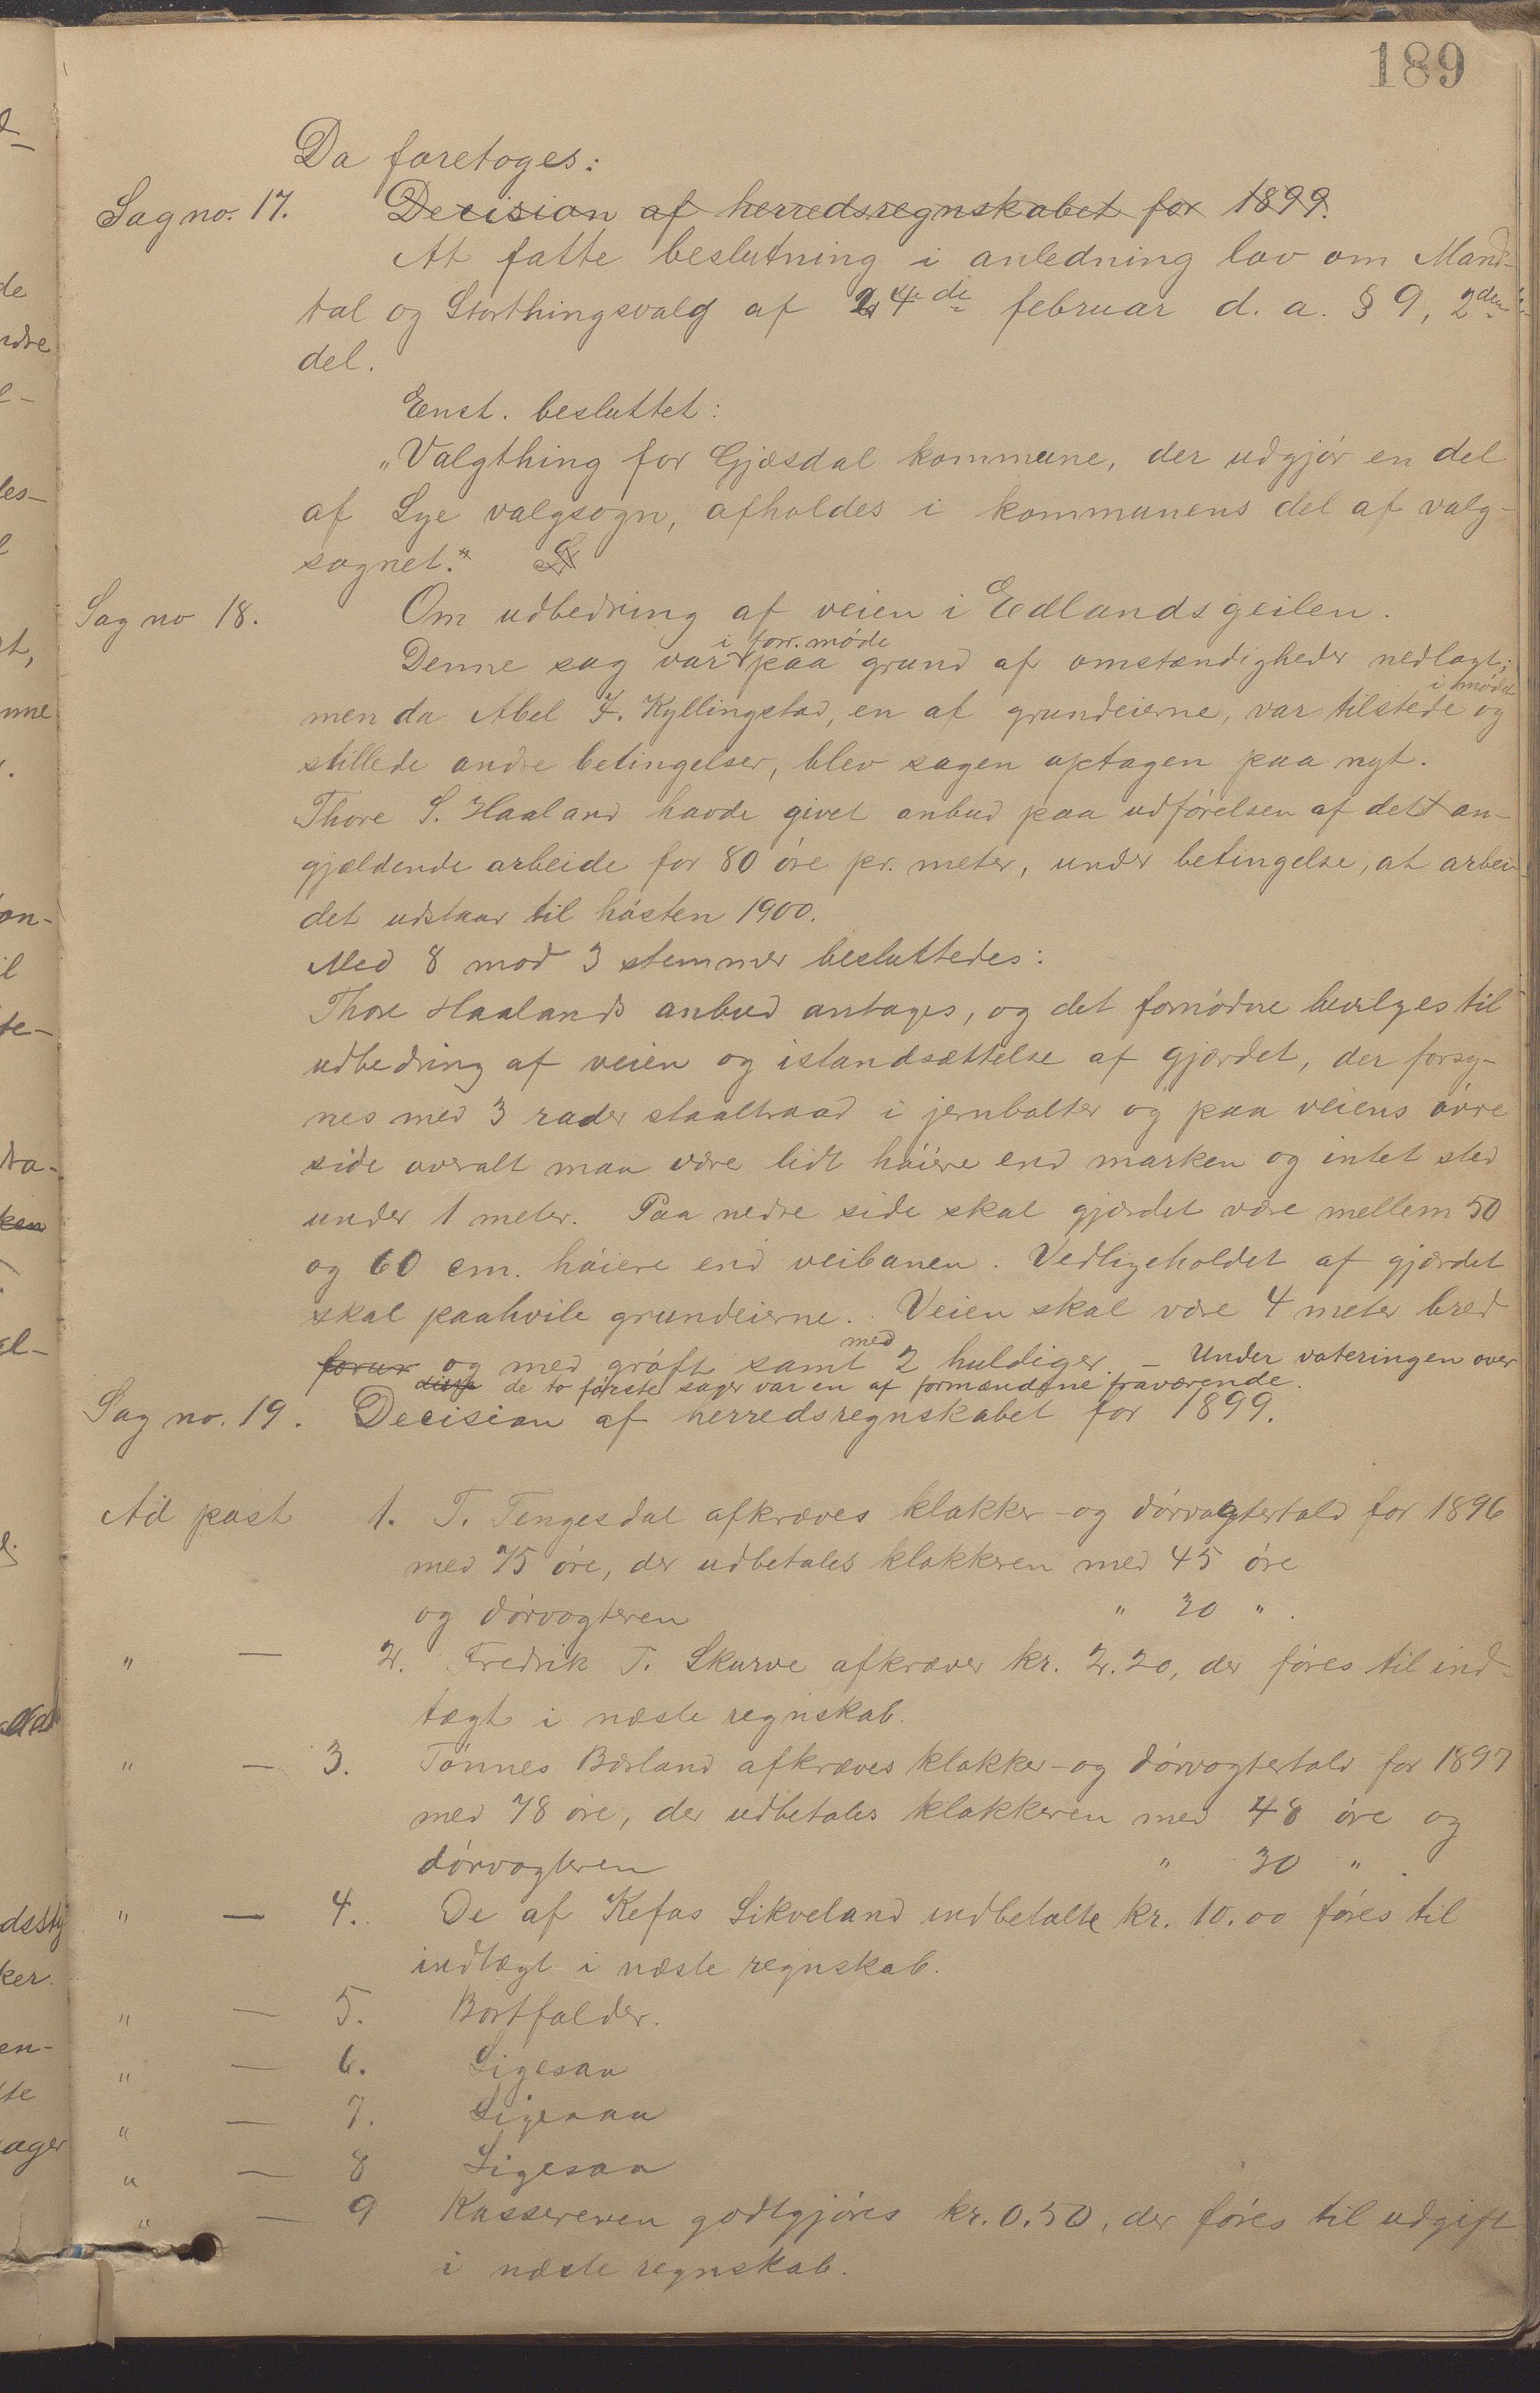 189
Da foretoges:
Sag no. 17. Decision af herredsregnskabet for 1899.
At fatte beslutning i anledning lov om Mand-
tal og Storthingsvalg af 24de februar d. a. § 9, 2den
del.
Enst. besluttet:
„Valgthing for Gjæsdal kommune, der udgjør en del
af Lye valgsogn, afholdes i kommunens del af valg-
sognet.“
Sag no 18. Om udbedring af veien i Edlandsgeilen.
Denne sag var i forr. møde paa grund af omstændigheder nedlagt;
men da Abel F. Kyllingstad, en af grundeierne, var tilstede i mødet og
stillede andre betingelser, blev sagen optagen paa nyt.
Thore S. Haaland havde givet anbud paa udførelsen af dett an-
gjældende arbeide for 80 øre pr. meter, under betingelse, at arbei-
det udstaar til høsten 1900.
Med 8 mod 3 stemmer besluttedes:
Thore Haalands anbud antages, og det fornødne bevilges til
udbedring af veien og istandsættelse af gjærdet, der forsy-
nes med 3 rader staaltraad i jernbolter og paa veiens øvre
side overalt maa være lidt høiere end marken og intet sted
under 1 meter. Paa nedre side skal gjærdet være mellem 50
og 60 cm. høiere end veibanen. Vedligeholdet af gjærdet
skal paahvile grundeierne. Veien skal være 4 meter bred
forur og med grøft samt med 2 huldiger. – Under voteringen over
disse de to første sager var en af formændene fraværende.
Sag no. 19. Decision af herredsregnskabet for 1899.
Ad post 1. T. Tengesdal afkræves klokker- og dørvogtertold for 1896
med 75 øre, der udbetales klokkeren med 45 øre
og dørvogteren " 30 ".
" — 2. Fredrik T. Skurve afkræver kr. 2.20, der føres til ind-
tægt i næste regnskab.
" — 3. Tønnes Børland afkræves klokker- og dørvogtertold for 1897
med 78 øre, der udbetales klokkeren med 48 øre og
dørvogteren " 30 ".
" — 4. De af Kefas Sikveland indbetalte kr. 10.00 føres til
indtægt i næste regnskab.
" — 5. Bortfalder.
" — 6. Ligesaa
" — 7. Ligesaa
" — 8 Ligesaa
" — 9 Kassereren godtgjøres kr. 0.50, der føres til udgift
i næste regnskab.